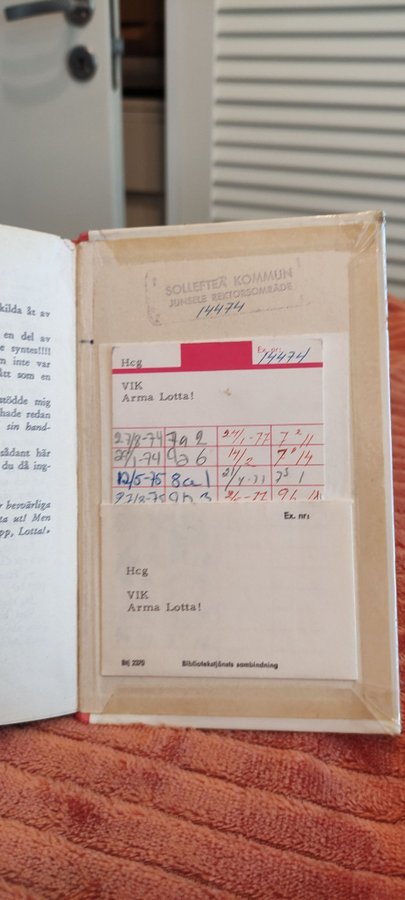 kilda åt av
en del av
e syntes!!!!
m inte var
ått som en
stödde mig
hade redan
sin hand-
sådant här
du då ing-
r besvärliga
ta ut! Men
pp, Lotta!»
SOLLEFTEÅ KOMMUN
JUNSELE REKTORSOMRÅDE
14474
Ex. nr:
Hcg 14474
VIK
Arma Lotta!
27/8-74 7a 2 24/1-77 7² 11
9a 6 14/2 7² 14
12/5-75 8a 1 7³ 1
Ex. nr:
Hcg
VIK
Arma Lotta!
Btj 2370 Bibliotekstjänsts sambindning